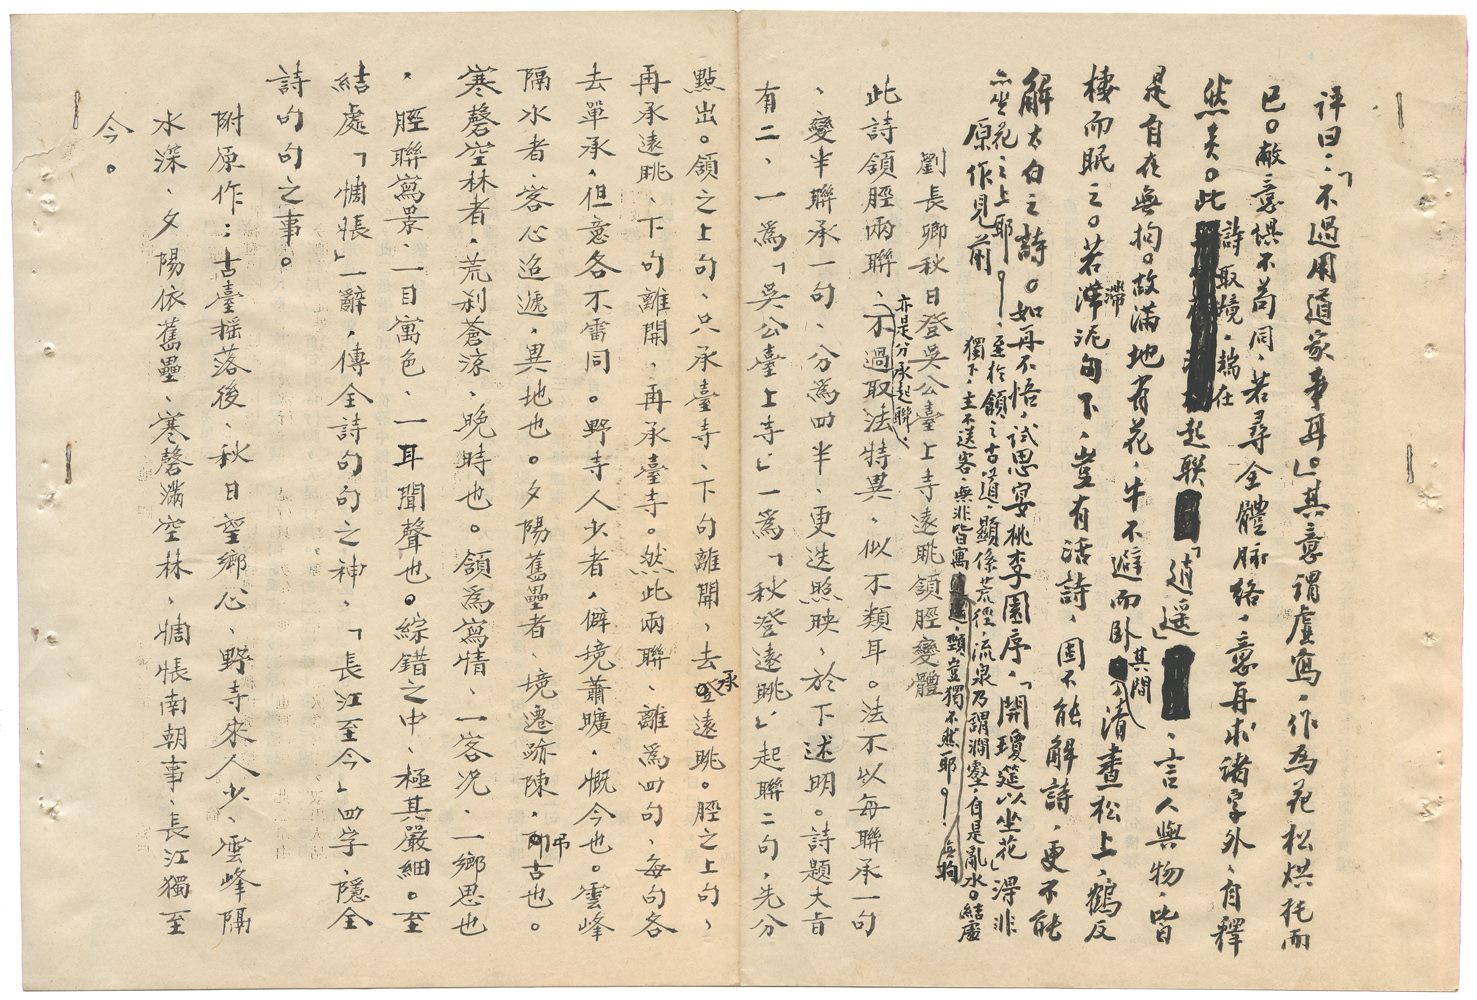 評曰：「不過用道家事耳。」其意謂虛寫，作為花松烘托而
已。敝意懼不苟同，若尋全體脉絡，意再求諸字外，自釋
然矣。此詩取境，端在起聯「逍遥」，言人與物，皆
是自在無拘。故滿地有花，牛不避而臥其間，清晝松上，鶴反
棲而眠之。若滯泥句下，豈有活詩，固不能解詩，更不能
解太白之詩。如再不悟，試思宴桃李園序，「開瓊筵以坐花」，得非
亦坐花之上耶？，至於領之古道，顯係荒徑，流泉乃謂澗壑，自是亂水。結處
獨下，主不送客，無非皆寓無拘，頸豈獨不然耶？
原作見前
劉長卿秋日登吳公臺上寺遠眺領脛變體
此詩領脛兩聯，亦是分承起聯，不過取法特異，似不類耳。法不以每聯承一句
、變半聯承一句、分為四半、更迭照映，於下述明。詩題大旨
有二、一為「吳公臺上寺」一為「秋登遠眺」起聯二句，先分
點出。領之上句、只承臺寺、下句離開，去承遠眺。脛之上句、
再承遠眺、下句離開、再承臺寺。然此兩聯、離為四句、每句各
去單承，但意各不雷同。野寺人少者，僻境蕭曠，慨今也。雲峰
隔水者，客心迢遞，異地也。夕陽舊壘者、境遷跡陳，弔古也。
寒磬空林者，荒刹蒼涼、晚時也。領為寫情、一客况、一鄉思也
，脛聯寫景、一目寓色、一耳聞聲也。綜錯之中、極其嚴細。至
結處「惆悵」一辭，傳全詩句句之神，「長江至今」四字、隱全
詩句句之事。
附原作：古臺摇落後、秋日望鄉心、野寺來人少、雲峰隔
水深、夕陽依舊壘、寒磬滿空林、惆悵南朝事、長江獨至
今。